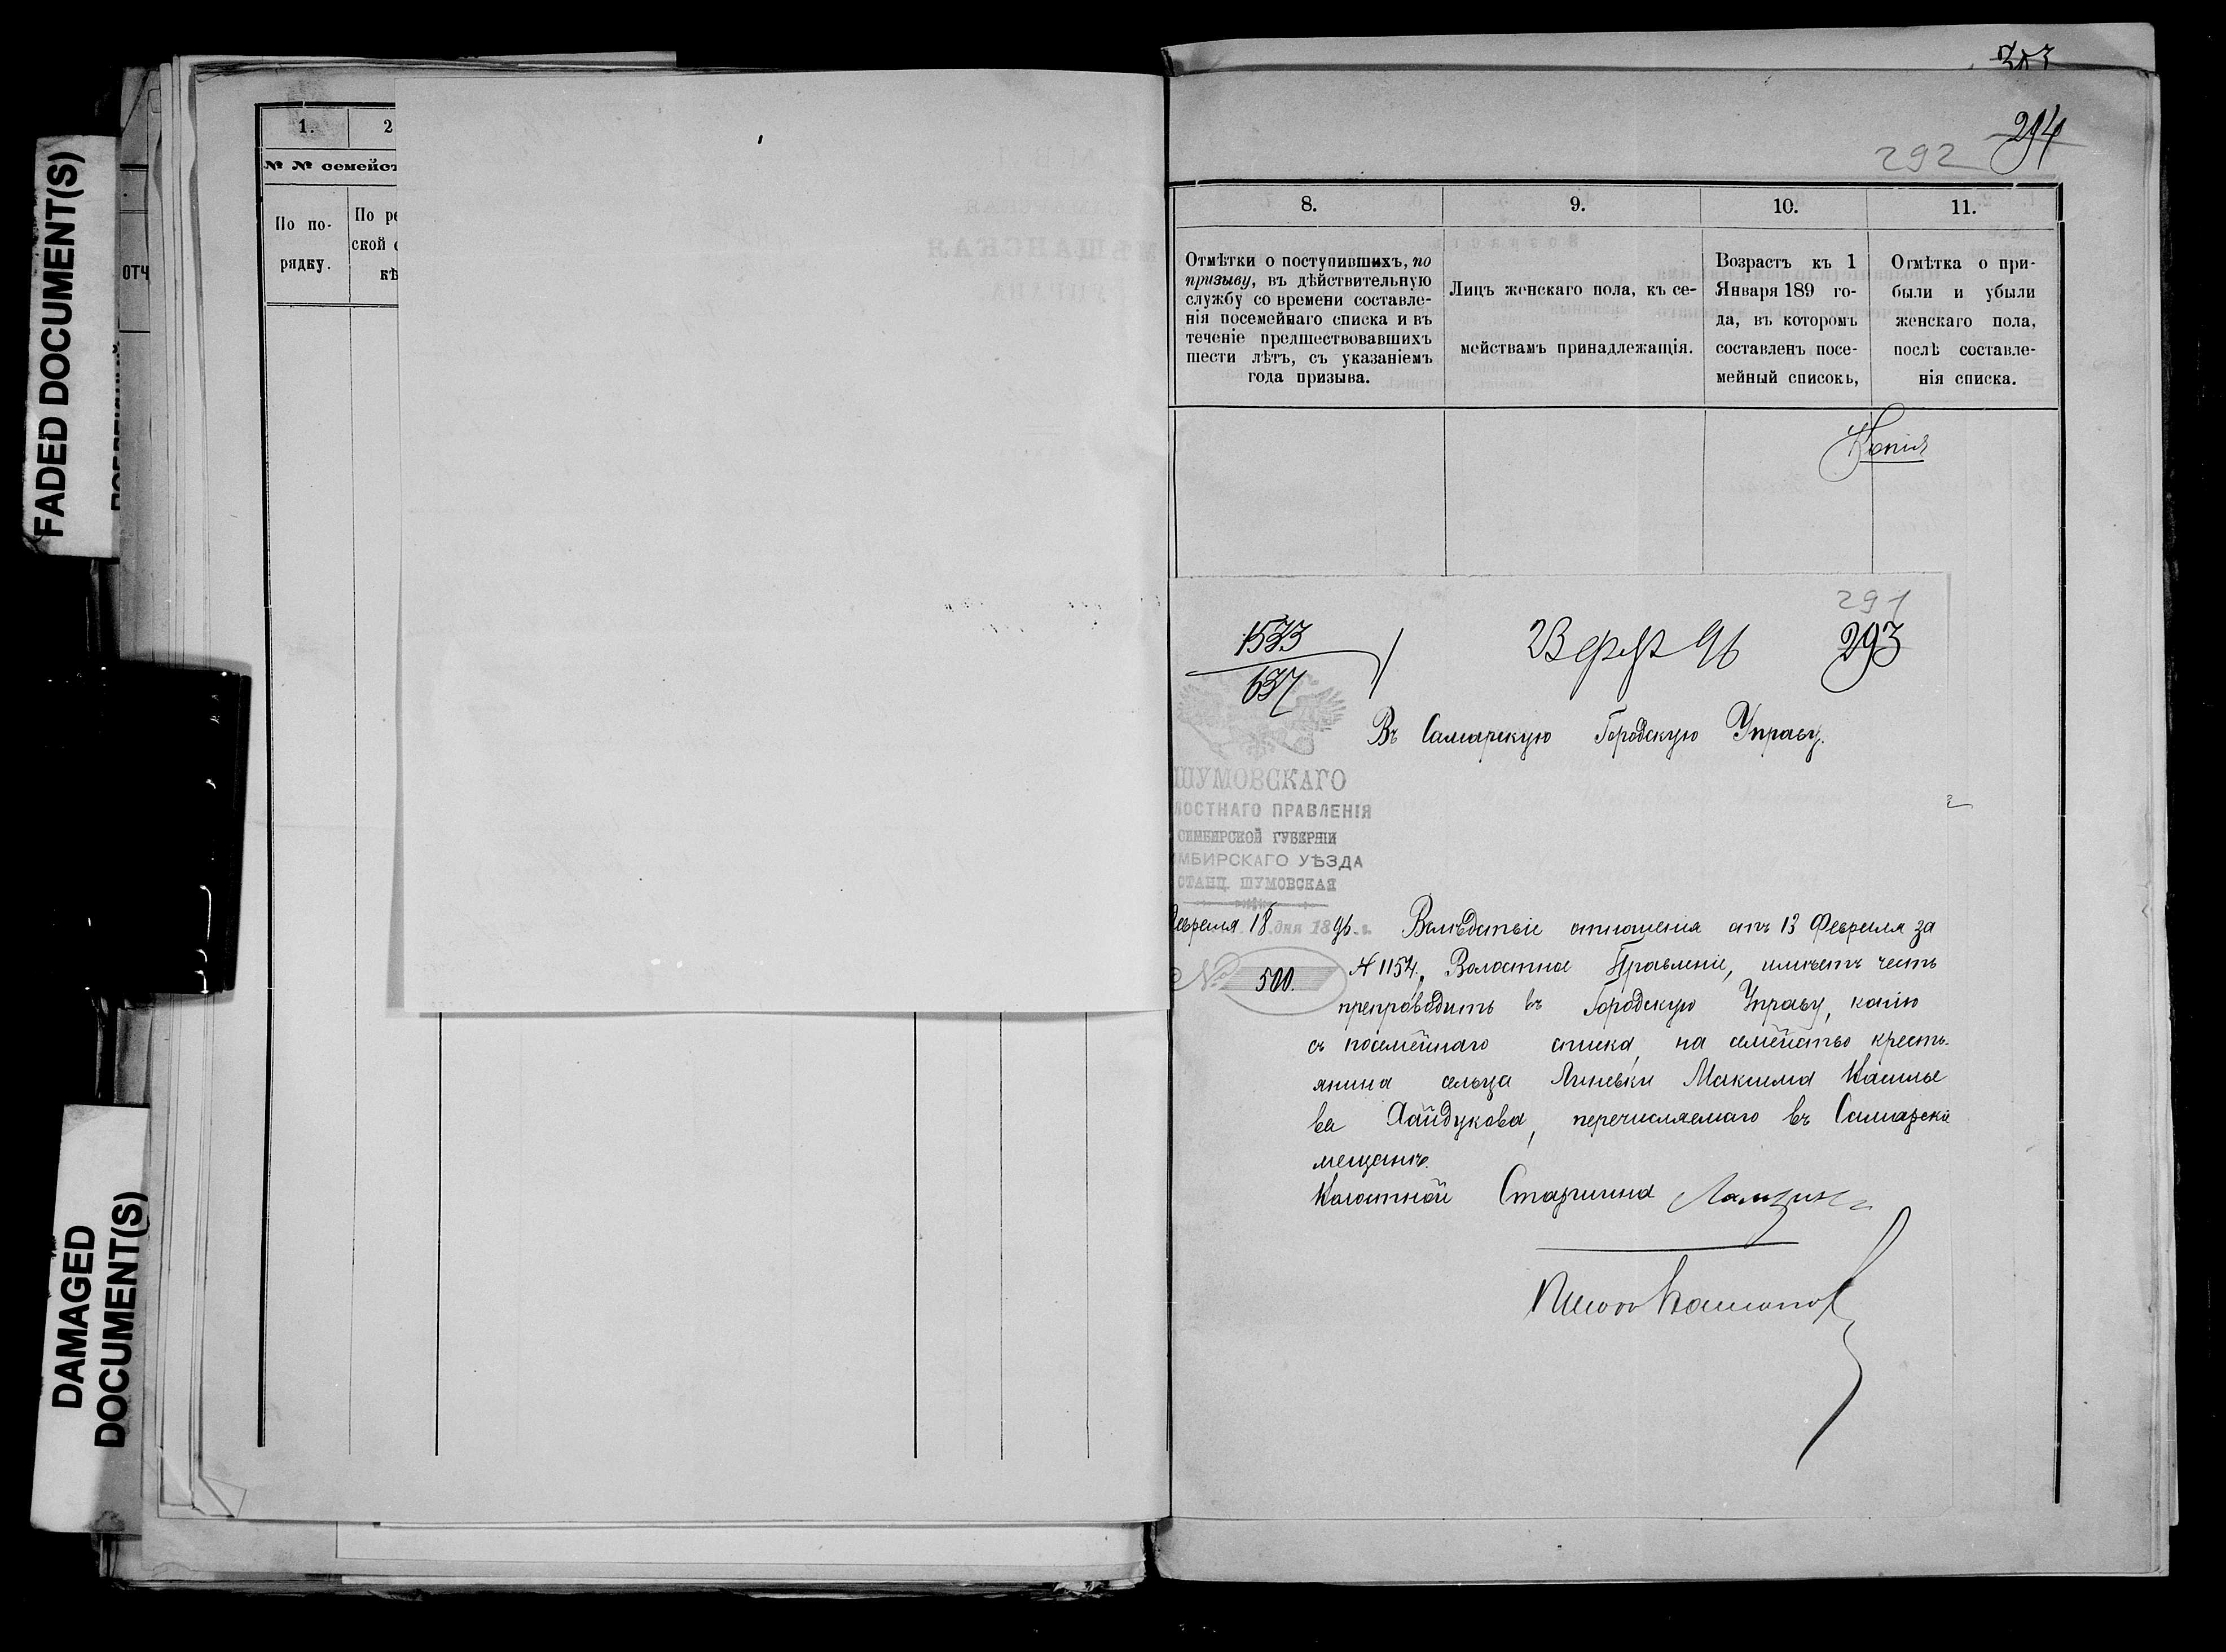 FADED DOCUMENT(S)
DAMAGED
DOCUMENT(S)
ОТЧ
1.
2
№ № семейст
По по-
рядку.
По ре
ской с
кѣ
303
294
292
8.
9.
10.
11.
Отмѣтки о поступившихъ, по
призыву, въ дѣйствительную
службу со времени составле-
нія посемейнаго списка и въ
теченіе предшествовавшихъ
шести лѣтъ, съ указаніемъ
года призыва.
Лицъ женскаго пола, къ се-
мействамъ принадлежащія.
Возрастъ къ 1
Января 189 го-
да, въ которомъ
составленъ посе-
мейный списокъ,
Отмѣтка о при-
были и убыли
женскаго пола,
послѣ составле-
нія списка.
Копія
291
1533
637
23 фев 96
293
Въ Самарскую Городскую Управу.
ШУМОВСКАГО
ЛОСТНАГО ПРАВЛЕНІЯ
СИМБИРСКОЙ ГУБЕРНІИ
МБИРСКАГО УѢЗДА
СТАНЦ. ШУМОВСКАЯ
февраля 18 дня 1896 г.
№ 500.
Вслѣдствіе отношенія отъ 13 Февраля за
№ 1154, Волостное Правленіе, имѣетъ честь
препроводить въ Городскую Управу, копію
съ посемейнаго списка, на семейство кресть-
янина сельца Линевки Максима Василье
ва Хайдукова, перечисляемаго въ Самарскіе
мещане.
Волостной Старшина